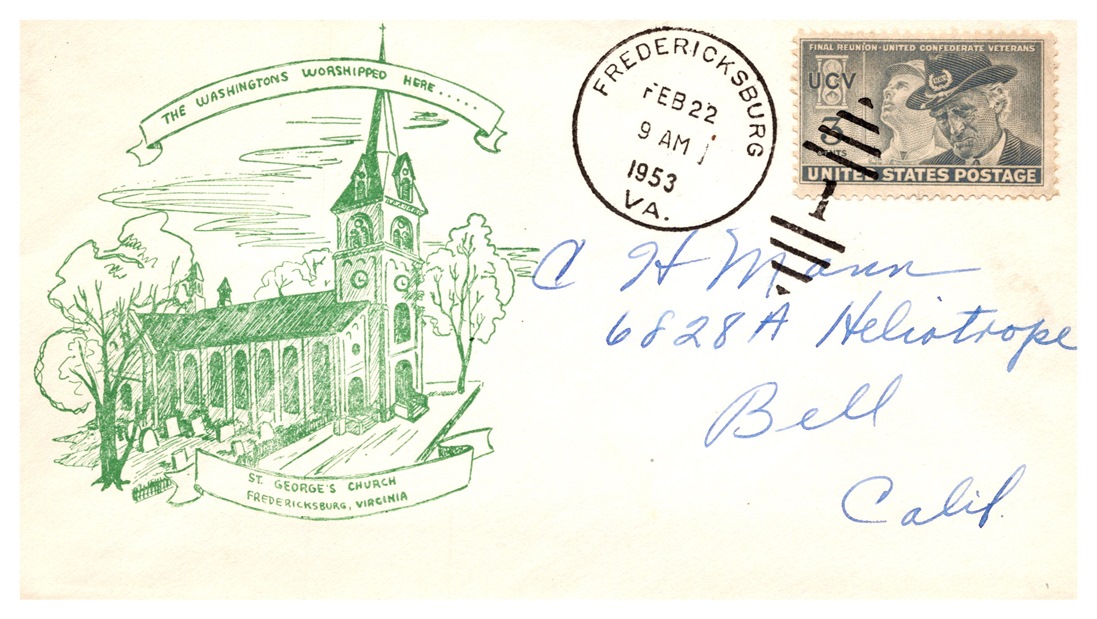 THE WASHINGTONS WORSHIPPED HERE.....
ST. GEORGE'S CHURCH
FREDERICKSBURG, VIRGINIA
FREDERICKSBURG
FEB 22
9 AM
1953
VA.
FINAL REUNION·UNITED CONFEDERATE VETERANS
UCV
3
CENTS
UNITED STATES POSTAGE
C H Mann
6828A Heliotrope
Bell
Calif.